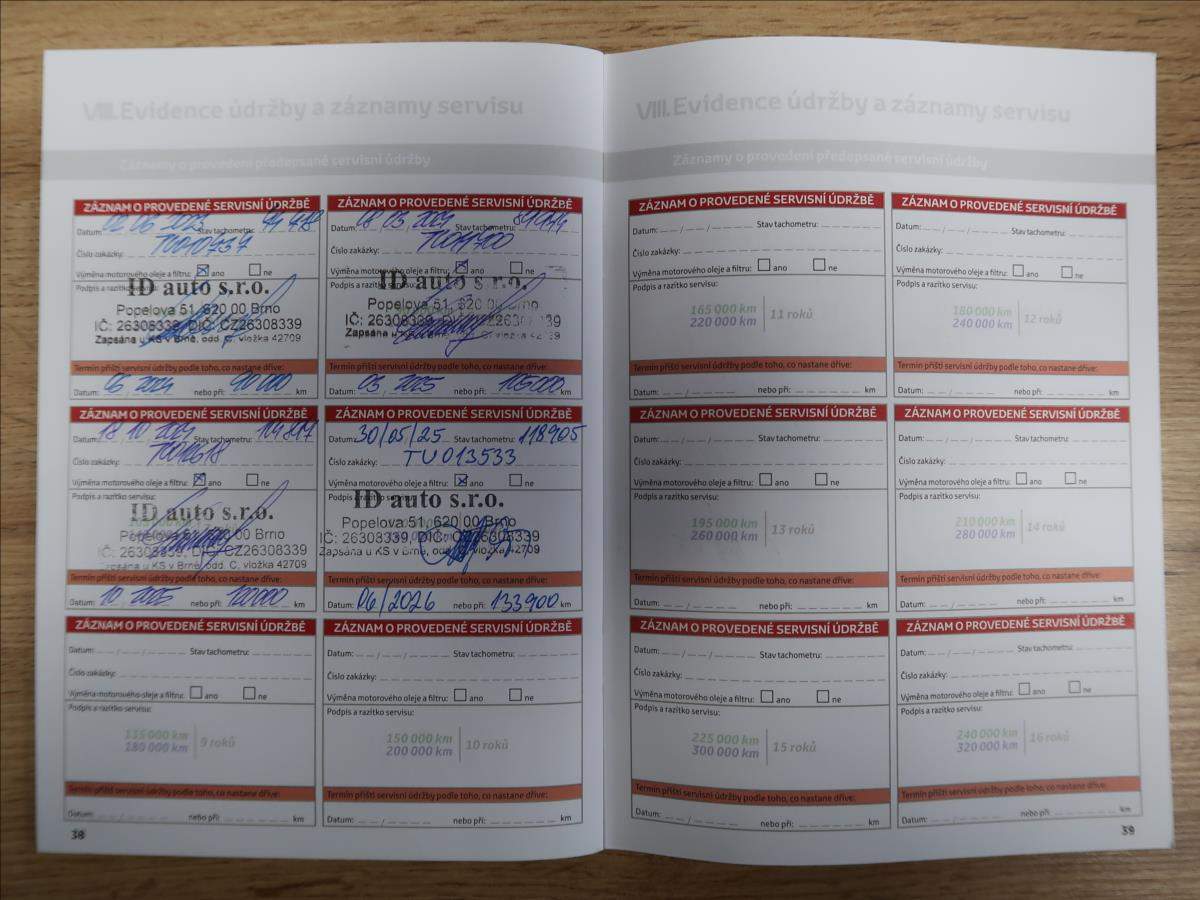 VIII. Evidence údržby a záznamy servisu
Záznamy o provedení předepsané servisní údržby
ZÁZNAM O PROVEDENÉ SERVISNÍ ÚDRŽBĚ
Datum: 02 06 2023 Stav tachometru:
Číslo zakázky: TU010737
Výměna motorového oleje a filtru: ano ne
Podpis a razítko servisu:
ID auto s.r.o.
Popelova 51, 620 00 Brno
IČ: 26308339, DIČ: CZ26308339
Zapsána u KS v Brně, odd. C, vložka 42709
Termín příští servisní údržby podle toho, co nastane dříve:
Datum: 06 2024 nebo při: 90 000 km
ZÁZNAM O PROVEDENÉ SERVISNÍ ÚDRŽBĚ
Datum: 08 03 2024 Stav tachometru:
Číslo zakázky:
Výměna motorového oleje a filtru: ano ne
Podpis a razítko servisu:
ID auto s.r.o.
Popelova 51, 620 00 Brno
IČ: 26308339, DIČ: CZ26308339
Zapsána u KS v Brně, odd. C, vložka 42709
Termín příští servisní údržby podle toho, co nastane dříve:
Datum: 03 2025 nebo při: 105000 km
ZÁZNAM O PROVEDENÉ SERVISNÍ ÚDRŽBĚ
Datum: 18 10 2024 Stav tachometru:
Číslo zakázky: TU012618
Výměna motorového oleje a filtru: ano ne
Podpis a razítko servisu:
ID auto s.r.o.
Popelova 51, 620 00 Brno
IČ: 26308339, DIČ: CZ26308339
Zapsána u KS v Brně, odd. C, vložka 42709
Termín příští servisní údržby podle toho, co nastane dříve:
Datum: 10 2025 nebo při: 120000 km
ZÁZNAM O PROVEDENÉ SERVISNÍ ÚDRŽBĚ
Datum: 30/05/25 Stav tachometru: 118905
Číslo zakázky: TU013533
Výměna motorového oleje a filtru: ano ne
Podpis a razítko servisu:
ID auto s.r.o.
Popelova 51, 620 00 Brno
IČ: 26308339, DIČ: CZ26308339
Zapsána u KS v Brně, odd. C, vložka 42709
Termín příští servisní údržby podle toho, co nastane dříve:
Datum: 06/2026 nebo při: 133900 km
ZÁZNAM O PROVEDENÉ SERVISNÍ ÚDRŽBĚ
Datum: Stav tachometru:
Číslo zakázky:
Výměna motorového oleje a filtru: ano ne
Podpis a razítko servisu:
135 000 km
180 000 km
9 roků
Termín příští servisní údržby podle toho, co nastane dříve:
Datum: nebo při: km
ZÁZNAM O PROVEDENÉ SERVISNÍ ÚDRŽBĚ
Datum: Stav tachometru:
Číslo zakázky:
Výměna motorového oleje a filtru: ano ne
Podpis a razítko servisu:
150 000 km
200 000 km
10 roků
Termín příští servisní údržby podle toho, co nastane dříve:
Datum: nebo při: km
38
VIII. Evidence údržby a záznamy servisu
Záznamy o provedení předepsané servisní údržby
ZÁZNAM O PROVEDENÉ SERVISNÍ ÚDRŽBĚ
Datum: Stav tachometru:
Číslo zakázky:
Výměna motorového oleje a filtru: ano ne
Podpis a razítko servisu:
165 000 km
220 000 km
11 roků
Termín příští servisní údržby podle toho, co nastane dříve:
Datum: nebo při: km
ZÁZNAM O PROVEDENÉ SERVISNÍ ÚDRŽBĚ
Datum: Stav tachometru:
Číslo zakázky:
Výměna motorového oleje a filtru: ano ne
Podpis a razítko servisu:
180 000 km
240 000 km
12 roků
Termín příští servisní údržby podle toho, co nastane dříve:
Datum: nebo při: km
ZÁZNAM O PROVEDENÉ SERVISNÍ ÚDRŽBĚ
Datum: Stav tachometru:
Číslo zakázky:
Výměna motorového oleje a filtru: ano ne
Podpis a razítko servisu:
195 000 km
260 000 km
13 roků
Termín příští servisní údržby podle toho, co nastane dříve:
Datum: nebo při: km
ZÁZNAM O PROVEDENÉ SERVISNÍ ÚDRŽBĚ
Datum: Stav tachometru:
Číslo zakázky:
Výměna motorového oleje a filtru: ano ne
Podpis a razítko servisu:
210 000 km
280 000 km
14 roků
Termín příští servisní údržby podle toho, co nastane dříve:
Datum: nebo při: km
ZÁZNAM O PROVEDENÉ SERVISNÍ ÚDRŽBĚ
Datum: Stav tachometru:
Číslo zakázky:
Výměna motorového oleje a filtru: ano ne
Podpis a razítko servisu:
225 000 km
300 000 km
15 roků
Termín příští servisní údržby podle toho, co nastane dříve:
Datum: nebo při: km
ZÁZNAM O PROVEDENÉ SERVISNÍ ÚDRŽBĚ
Datum: Stav tachometru:
Číslo zakázky:
Výměna motorového oleje a filtru: ano ne
Podpis a razítko servisu:
240 000 km
320 000 km
16 roků
Termín příští servisní údržby podle toho, co nastane dříve:
Datum: nebo při: km
39